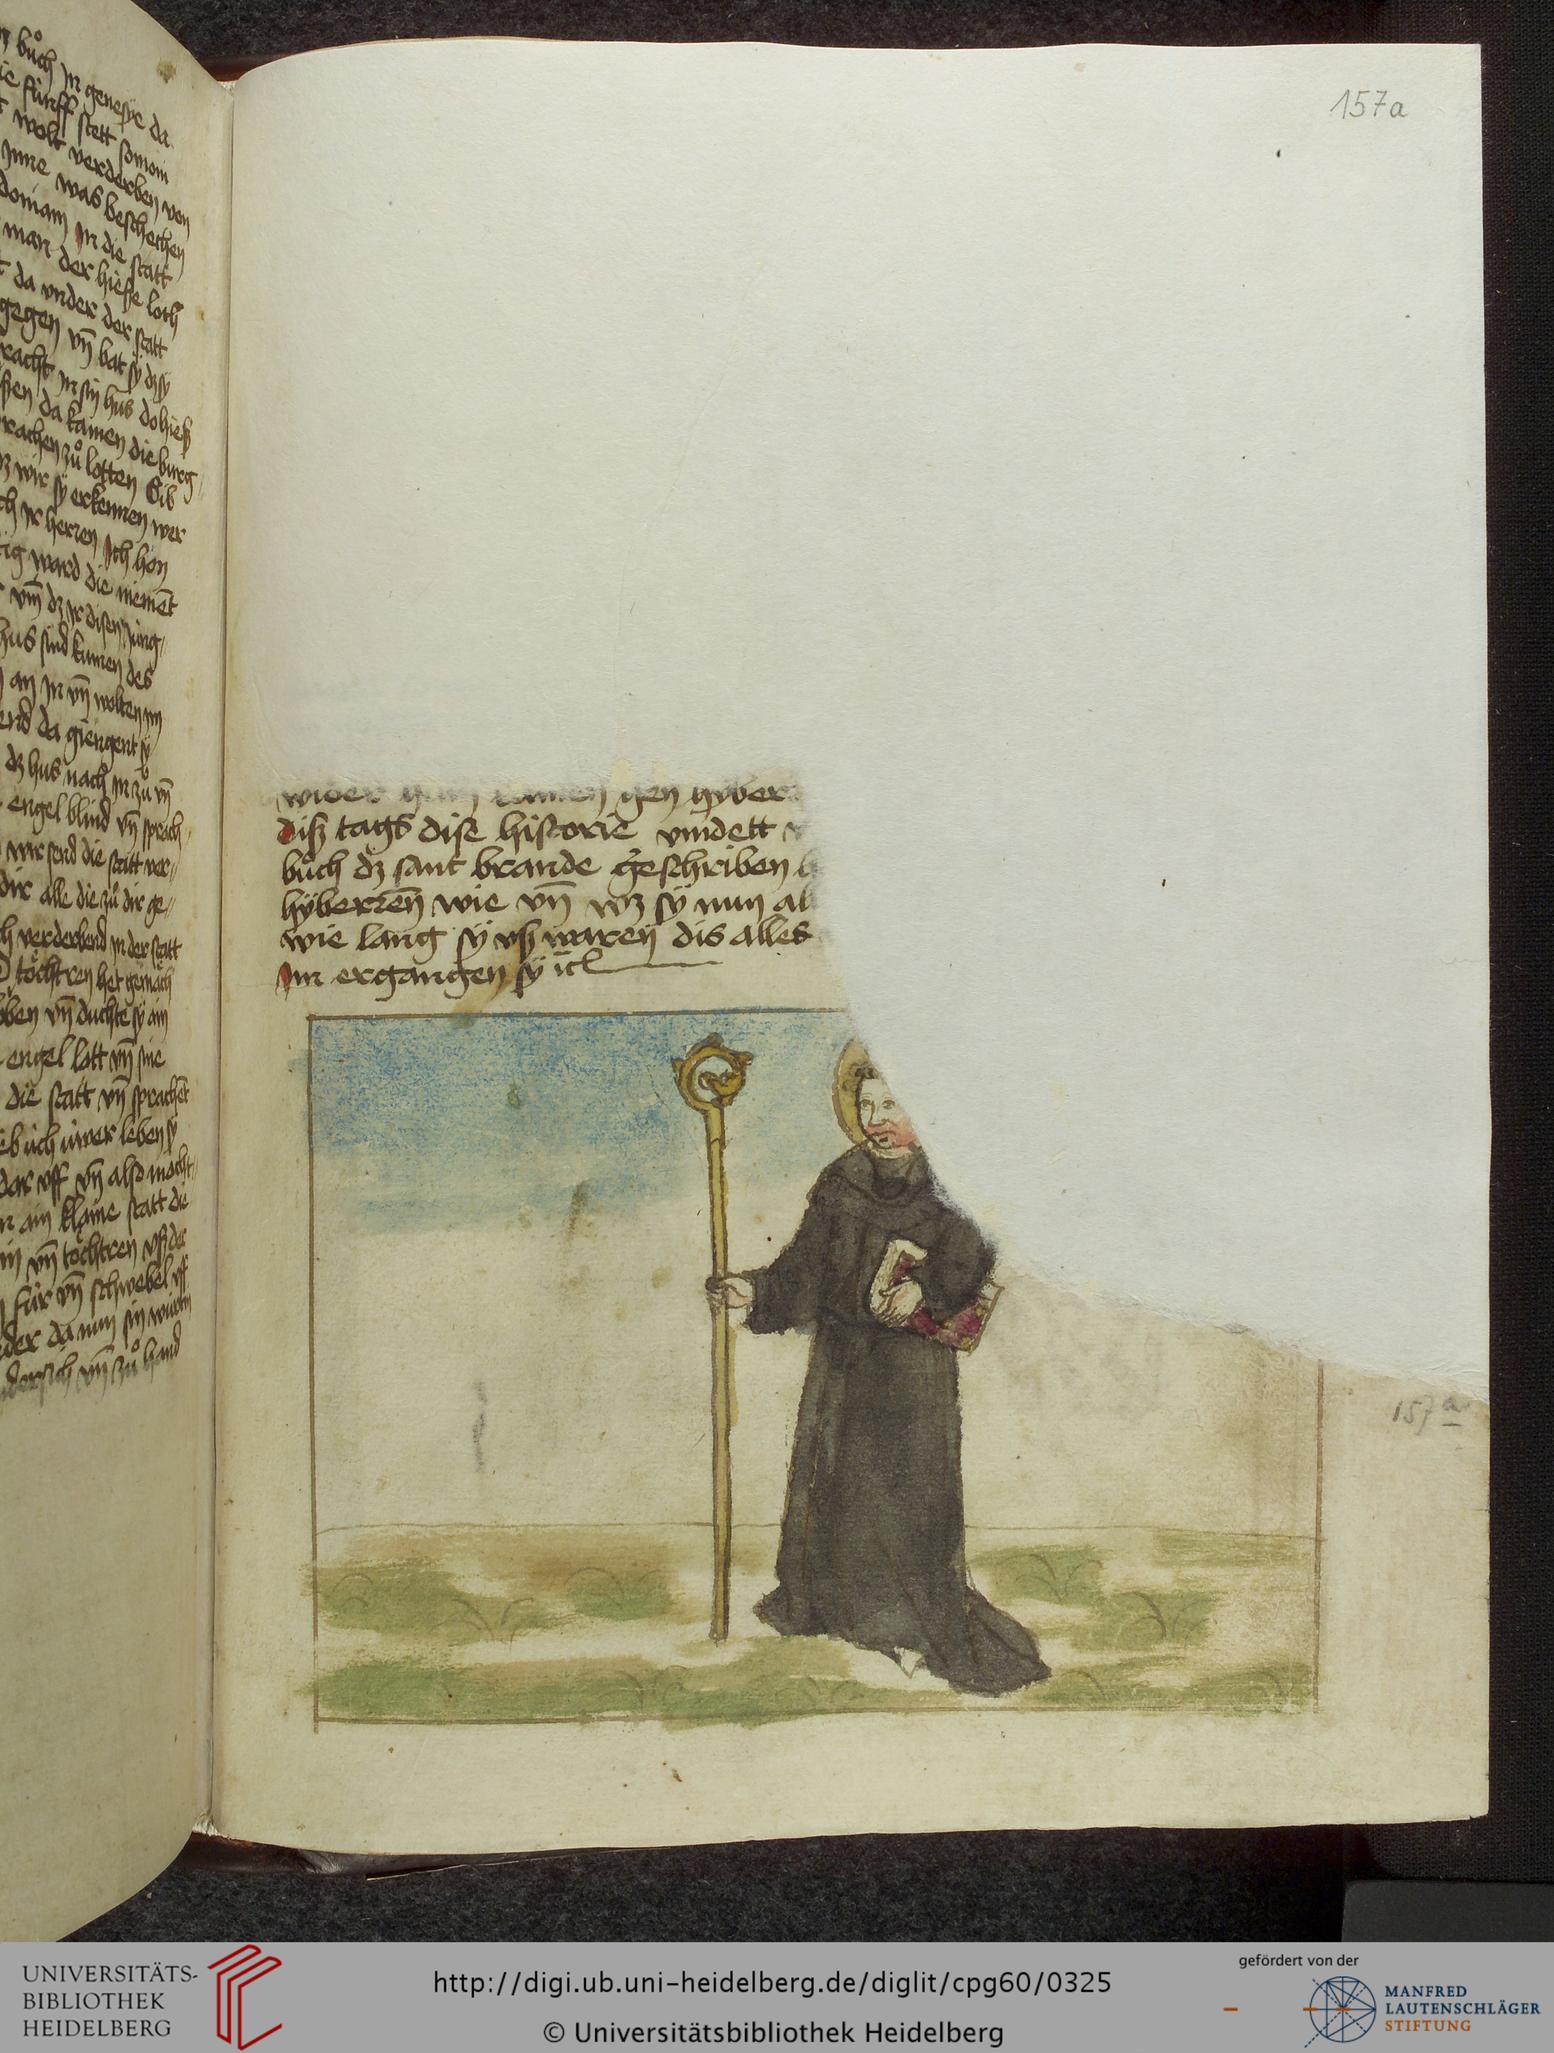 buͦch In genesye da
fúnff stett somom
wolt verderben von
Inne was beschechen
In die statt
man der hiesse loth
da vnder der statt
gegen vn̄ bat sÿ dz sÿ
In sin hus do hiess
da kamen die burg
zuͦ lotten Gib
wir sÿ erkennen wer
Ir herren Ich hon
ward die niement
vm̄ dz Ir disen Jung
hus sind kumen des
an In vn̄ wolten im
da giengent sÿ
dz hus nach In zuͦ vn̄
engel blind vn̄ sprach
wir send die statt ver
dir alle die zuͦ dir ge
verderbend In der statt
töchtren het gemach
vn̄ duchte sÿ ain
engel lott vn̄ sine
die statt vn̄ sprachent
úch úwer leben sÿ
dar vff vn̄ also macht
ain klaine statt die
vn̄ töchtren vsz der
fúr vn̄ schwebel vff
da nun sin wúrtin
vn̄ zuͦ hand
157a
wider kamen gen hÿber
disz tags dise historie vindett
buͦch dz sant brande geschriben
hÿberren wie vn̄ wz sÿ nun al
wie lang sÿ vsz waren dis alles
Im ergangen sÿ
157a
UNIVERSITÄTS-
BIBLIOTHEK
HEIDELBERG
http://digi.ub.uni-heidelberg.de/diglit/cpg60/0325
© Universitätsbibliothek Heidelberg
gefördert von der
MANFRED
LAUTENSCHLÄGER
STIFTUNG